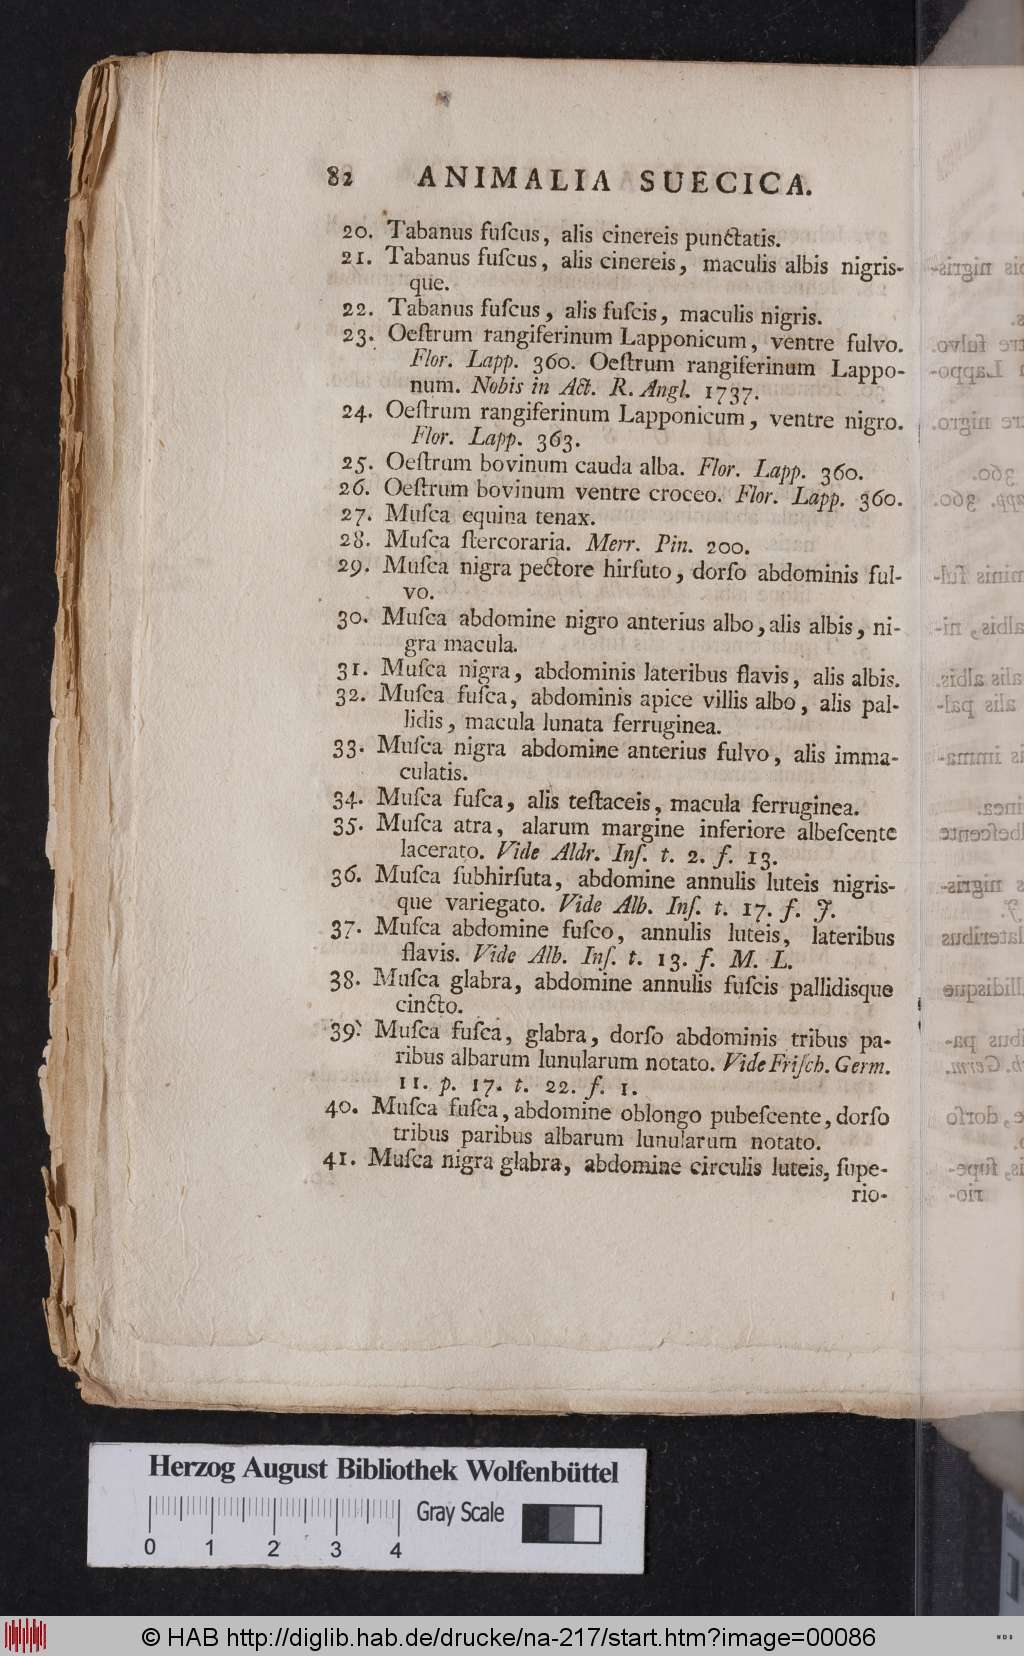 82 ANIMALIA SUECICA.
20. Tabanus fuſcus, alis cinereis punctatis.
21. Tabanus fuſcus, alis cinereis, maculis albis nigris-
que.
22. Tabanus fuſcus, alis fuſcis, maculis nigris.
23. Oeſtrum rangiferinum Lapponicum, ventre fulvo.
Flor. Lapp. 360. Oeſtrum rangiferinum Lappo-
num. Nobis in Act. R. Angl. 1737.
24. Oeſtrum rangiferinum Lapponicum, ventre nigro.
Flor. Lapp. 363.
25. Oeſtrum bovinum cauda alba. Flor. Lapp. 360.
26. Oeſtrum bovinum ventre croceo. Flor. Lapp. 360.
27. Muſca equina tenax.
28. Muſca ſtercoraria. Merr. Pin. 200.
29. Muſca nigra pectore hirſuto, dorſo abdominis ful-
vo.
30. Muſca abdomine nigro anterius albo, alis albis, ni-
gra macula.
31. Muſca nigra, abdominis lateribus flavis, alis albis.
32. Muſca fuſca, abdominis apice villis albo, alis pal-
lidis, macula lunata ferruginea.
33. Muſca nigra abdomine anterius fulvo, alis imma-
culatis.
34. Muſca fuſca, alis teſtaceis, macula ferruginea.
35. Muſca atra, alarum margine inferiore albeſcente
lacerato. Vide Aldr. Inſ. t. 2. f. 13.
36. Muſca ſubhirſuta, abdomine annulis luteis nigris-
que variegato. Vide Alb. Inſ. t. 17. f. J.
37. Muſca abdomine fuſco, annulis luteis, lateribus
flavis. Vide Alb. Inſ. t. 13. f. M. L.
38. Muſca glabra, abdomine annulis fuſcis pallidisque
cincto.
39. Muſca fuſca, glabra, dorſo abdominis tribus pa-
ribus albarum lunularum notato. Vide Friſch. Germ.
11. p. 17. t. 22. f. 1.
40. Muſca fuſca, abdomine oblongo pubeſcente, dorſo
tribus paribus albarum lunularum notato.
41. Muſca nigra glabra, abdomine circulis luteis, ſupe-
rio-
Herzog August Bibliothek Wolfenbüttel
Gray Scale
0 1 2 3 4
© HAB http://diglib.hab.de/drucke/na-217/start.htm?image=00086